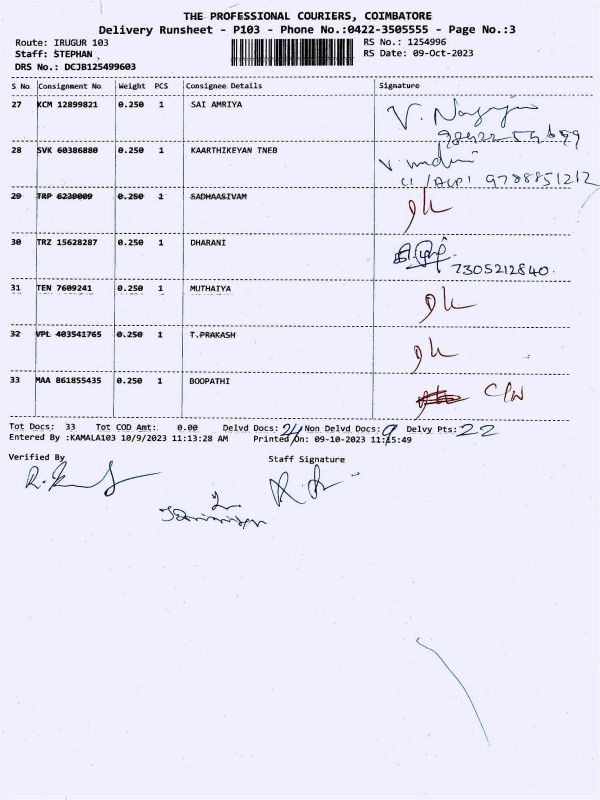 THE PROFESSIONAL COURIERS, COIMBATORE
Delivery Runsheet - P103 - Phone No.:0422-3505555 - Page No.:3
Route: IRUGUR 103 RS No.: 1254996
Staff: STEPHAN RS Date: 09-Oct-2023
DRS No.: DCJB125499603
S No Consignment No Weight PCS Consignee Details Signature
27 KCM 12899821 0.250 1 SAI AMRIYA
28 SVK 60386880 0.250 1 KAARTHIKEYAN TNEB
9788851212
29 TRP 6239009 0.250 1 SADHAASIVAM
30 TRZ 15628287 0.250 1 DHARANI
7305212840.
31 TEN 7609241 0.250 1 MUTHAIYA
32 VPL 403541765 0.250 1 T.PRAKASH
33 MAA 861855435 0.250 1 BOOPATHI
Tot Docs: 33 Tot COD Amt: 0.00 Delvd Docs: 24 Non Delvd Docs: 9 Delvy Pts: 22
Entered By :KAMALA103 10/9/2023 11:13:28 AM Printed On: 09-10-2023 11:15:49
Verified By Staff Signature